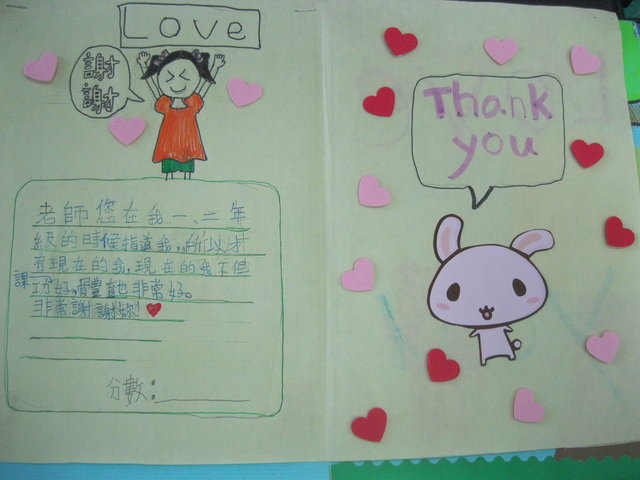 Love
謝
謝
老師您在我一、二年
級的時候指導我,所以才
有現在的我,現在的我不但
課功好。體育也非常好。
非常謝謝妳!
分數:
Thank
you